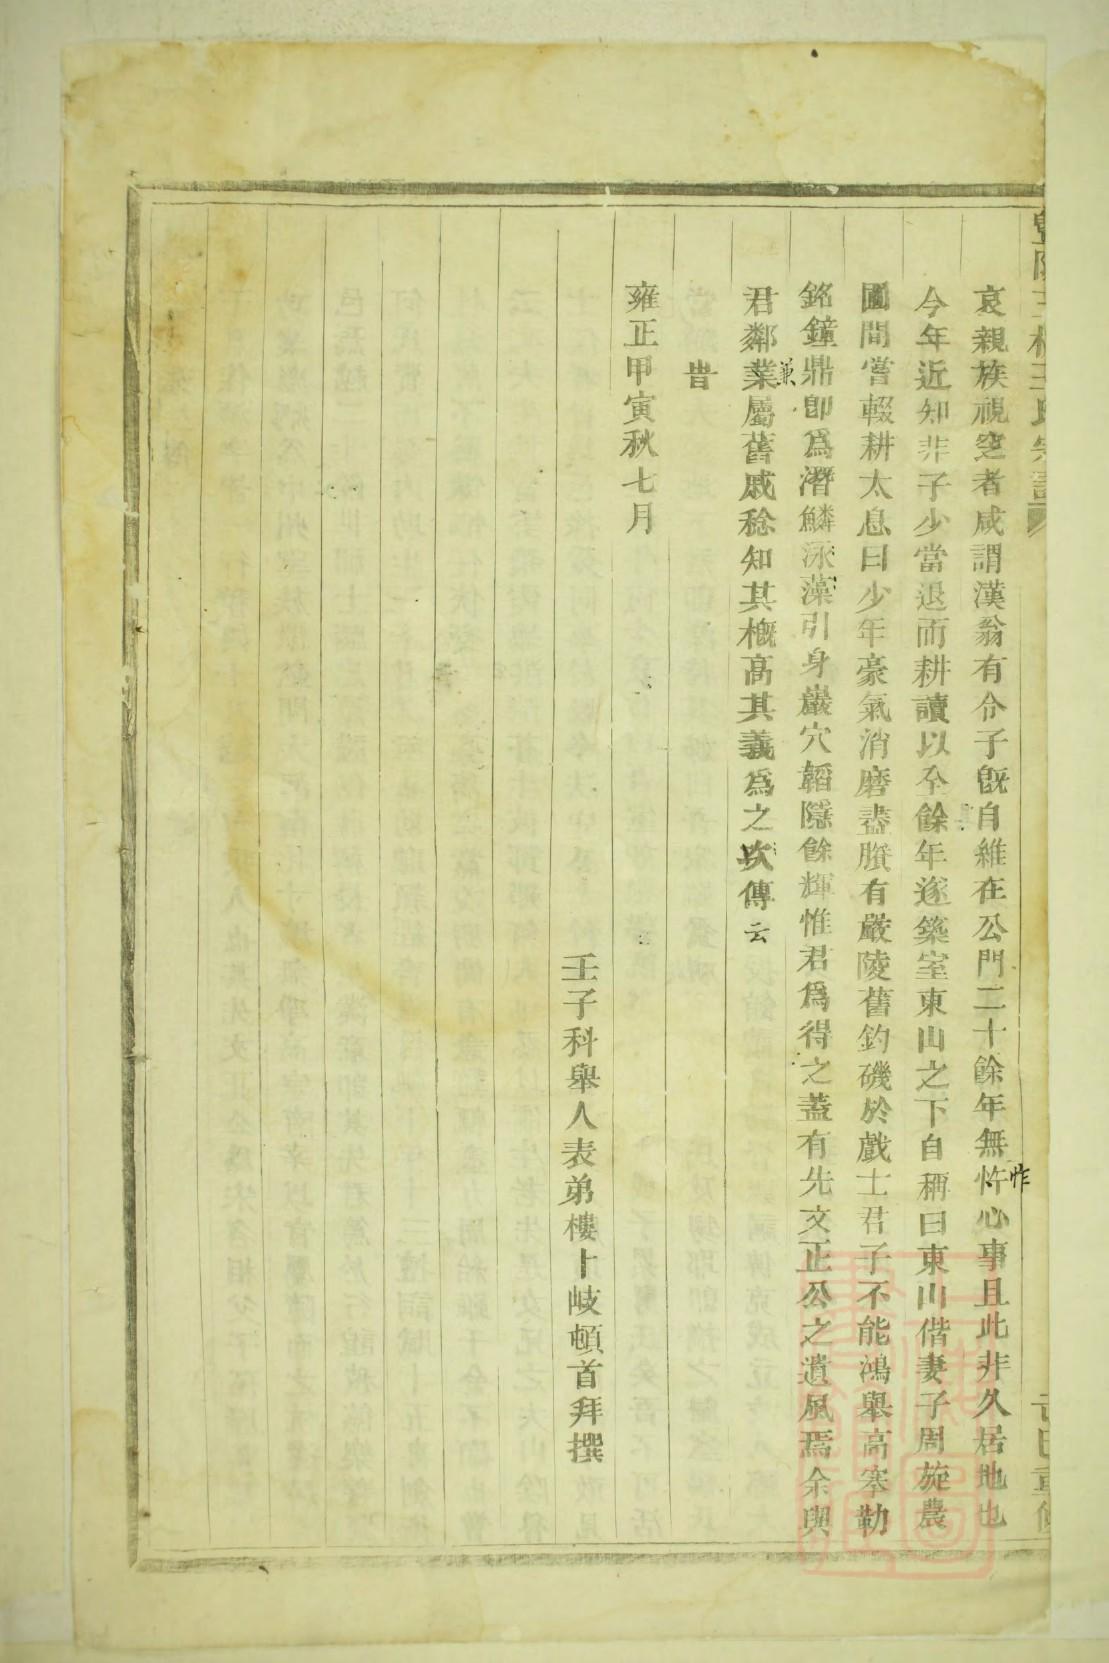 哀親族視窆者咸謂漢翁有令子旣自維在公門二十餘年無怍心事且此非久居地也
今年近知非子少當退而耕讀以全餘年遂築室東山之下自稱曰東山偕妻子周旋農
圃間嘗輟耕太息曰少年豪氣消磨盡賸有嚴陵舊釣磯於戲士君子不能鴻舉高騫勒
銘鐘鼎卽爲潛鱗泳藻引身巖穴韜隱餘輝惟君爲得之蓋有先文正公之遺風焉余與
君鄰業屬舊戚稔知其槪高其義爲之次傳云
兼
怍
旹
雍正甲寅秋七月
壬子科舉人表弟樓卜岐頓首拜撰